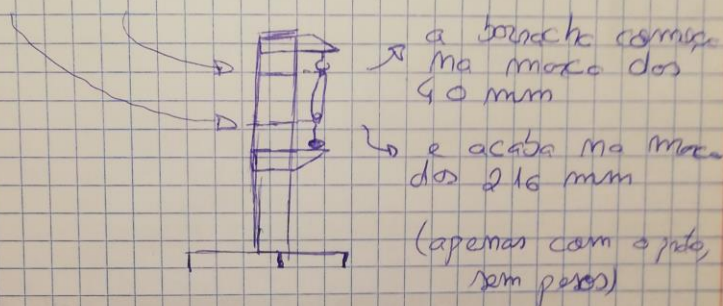 a borracha começa
na marca dos
40 mm
e acaba na marca
dos 216 mm
(apenas com o prato,
sem pesos)